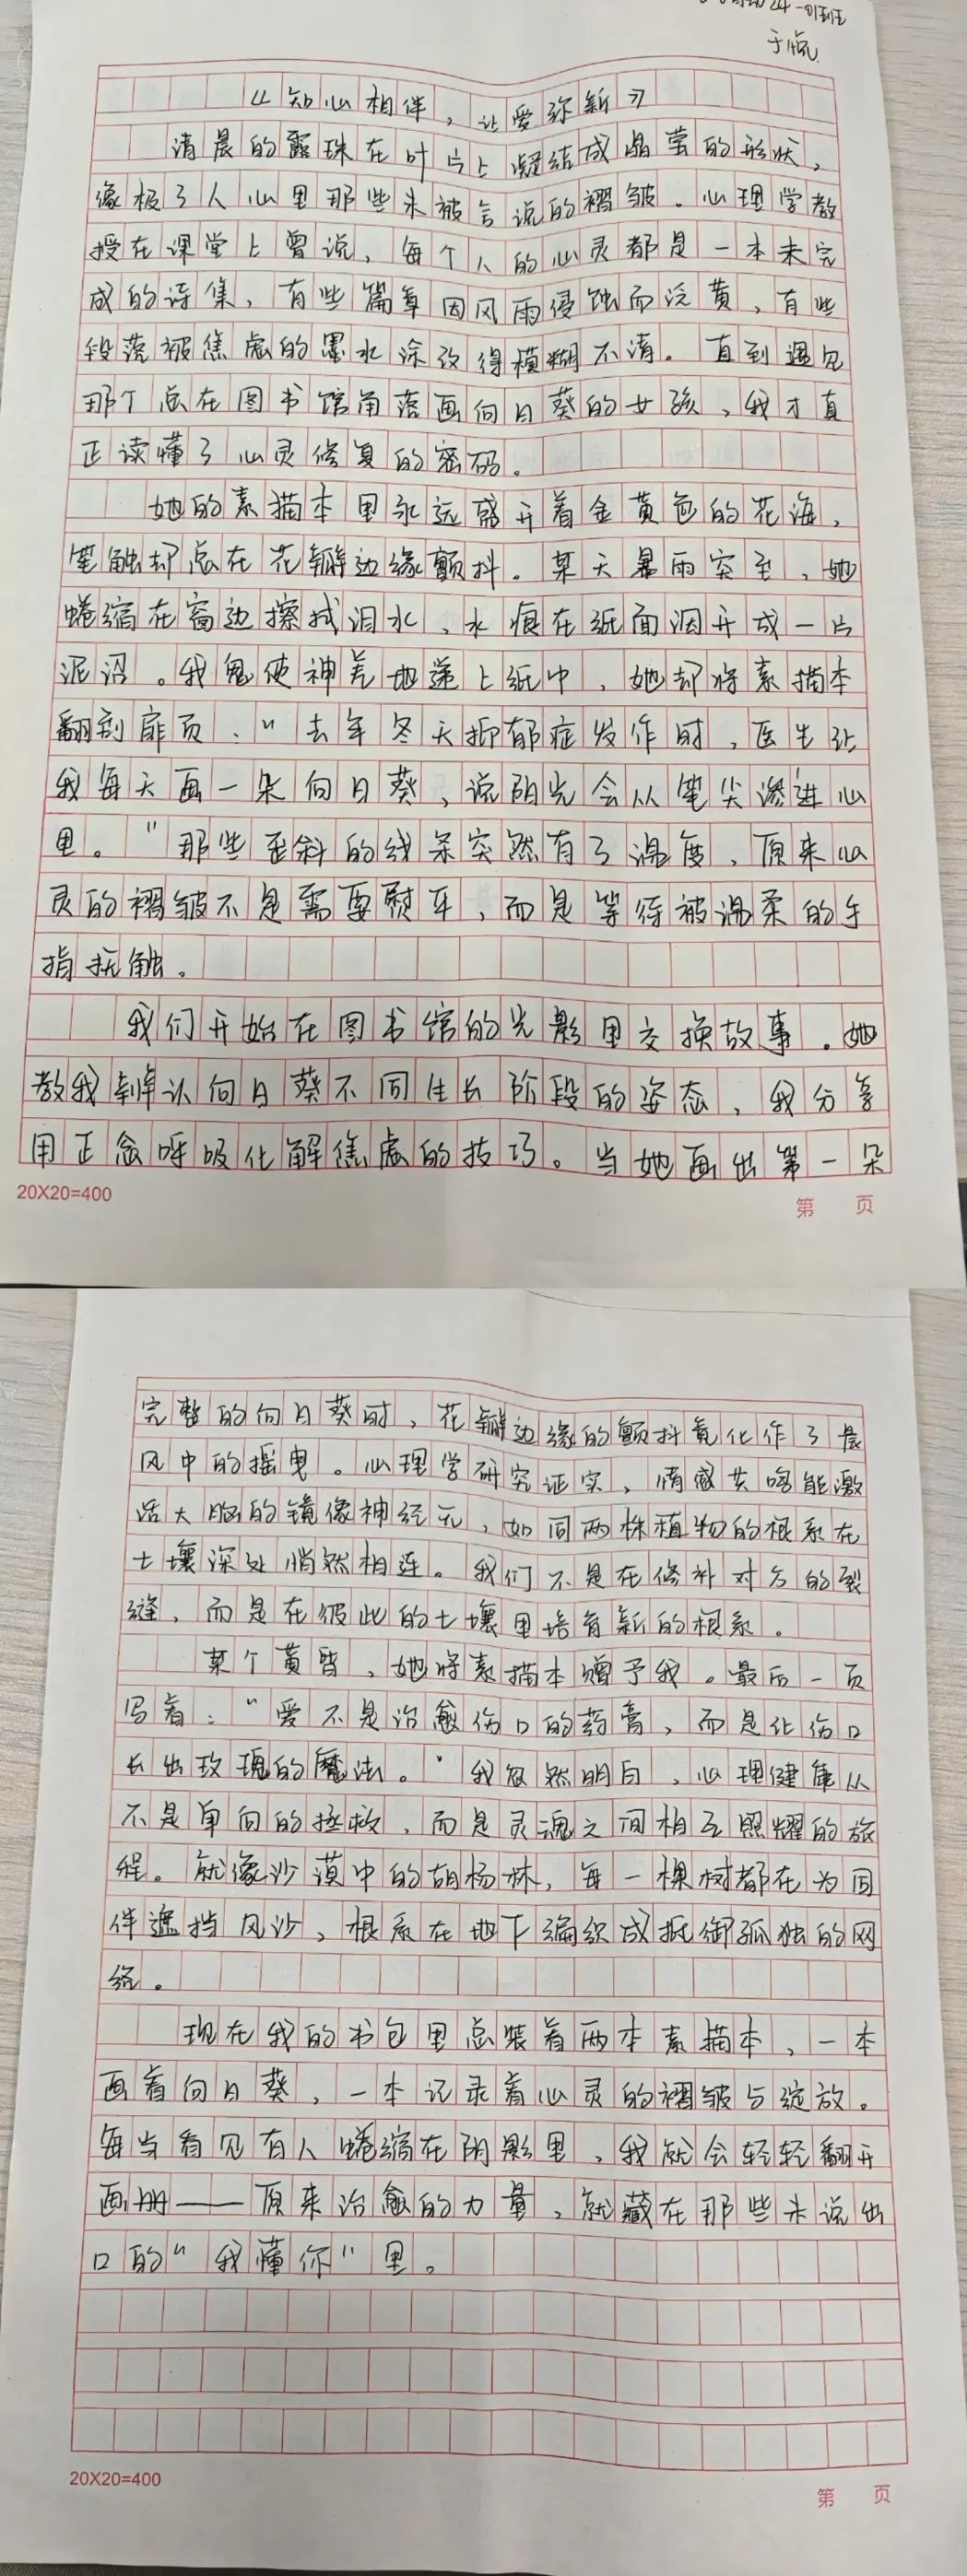 24-01班
于悦
《知心相伴，让爱弥新》
清晨的露珠在叶片上凝结成晶莹的形状，
像极了人心里那些未被言说的褶皱。心理学教
授在课堂上曾说，每个人的心灵都是一本未完
成的诗集，有些篇章因风雨侵蚀而泛黄，有些
段落被焦虑的墨水涂改得模糊不清。直到遇见
那个总在图书馆角落画向日葵的女孩，我才真
正读懂了心灵修复的密码。
她的素描本里永远盛开着金黄色的花海，
笔触却总在花瓣边缘颤抖。某天暴雨突至，她
蜷缩在窗边擦拭泪水，水痕在纸面洇开成一片
泥沼。我鬼使神差地递上纸巾，她却将素描本
翻到扉页："去年冬天抑郁症发作时，医生让
我每天画一朵向日葵，说阳光会从笔尖渗进心
里。"那些歪斜的线条突然有了温度，原来心
灵的褶皱不是需要熨平，而是等待被温柔的手
指抚触。
我们开始在图书馆的光影里交换故事。她
教我辨认向日葵不同生长阶段的姿态，我分享
用正念呼吸化解焦虑的技巧。当她画出第一朵
20X20=400
第 页
完整的向日葵时，花瓣边缘的颤抖竟化作了晨
风中的摇曳。心理学研究证实，情感共鸣能激
活大脑的镜像神经元，如同两株植物的根系在
土壤深处悄然相连。我们不是在修补对方的裂
缝，而是在彼此的土壤里培育新的根系。
某个黄昏，她将素描本赠予我。最后一页
写着："爱不是治愈伤口的药膏，而是让伤口
长出玫瑰的魔法。"我忽然明白，心理健康从
不是单向的拯救，而是灵魂之间相互照耀的旅
程。就像沙漠中的胡杨林，每一棵树都在为同
伴遮挡风沙，根系在地下编织成抵御孤独的网
络。
现在我的书包里总装着两本素描本，一本
画着向日葵，一本记录着心灵的褶皱与绽放。
每当看见有人蜷缩在阴影里，我就会轻轻翻开
画册——原来治愈的力量，就藏在那些未说出
口的"我懂你"里。
20X20=400
第 页